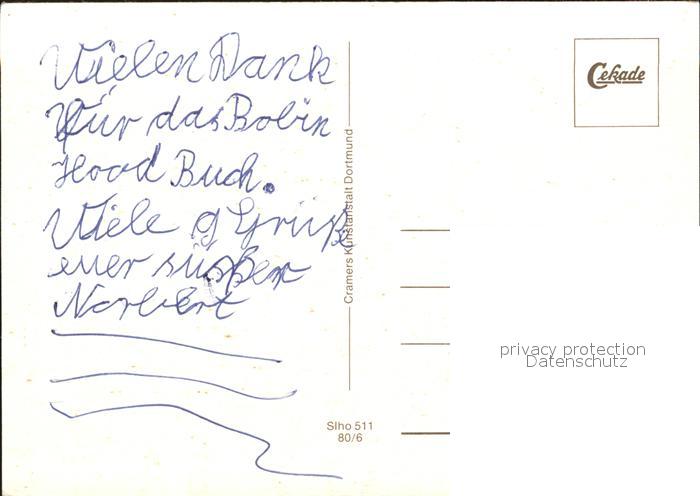 Vielen Dank
für das Bobin
Hood Buch.
Viele g Grüße
euer süßer
Norbert
Cekade
Cramers Kunstanstalt Dortmund
Slho 511
80/6
privacy protection
Datenschutz